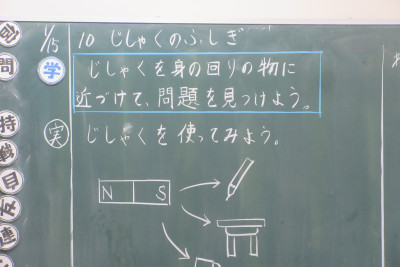 1/15
10 じしゃくのふしぎ
学
じしゃくを身の回りの物に
近づけて、問題を見つけよう。
実
じしゃくを使ってみよう。
N S
問
持
自